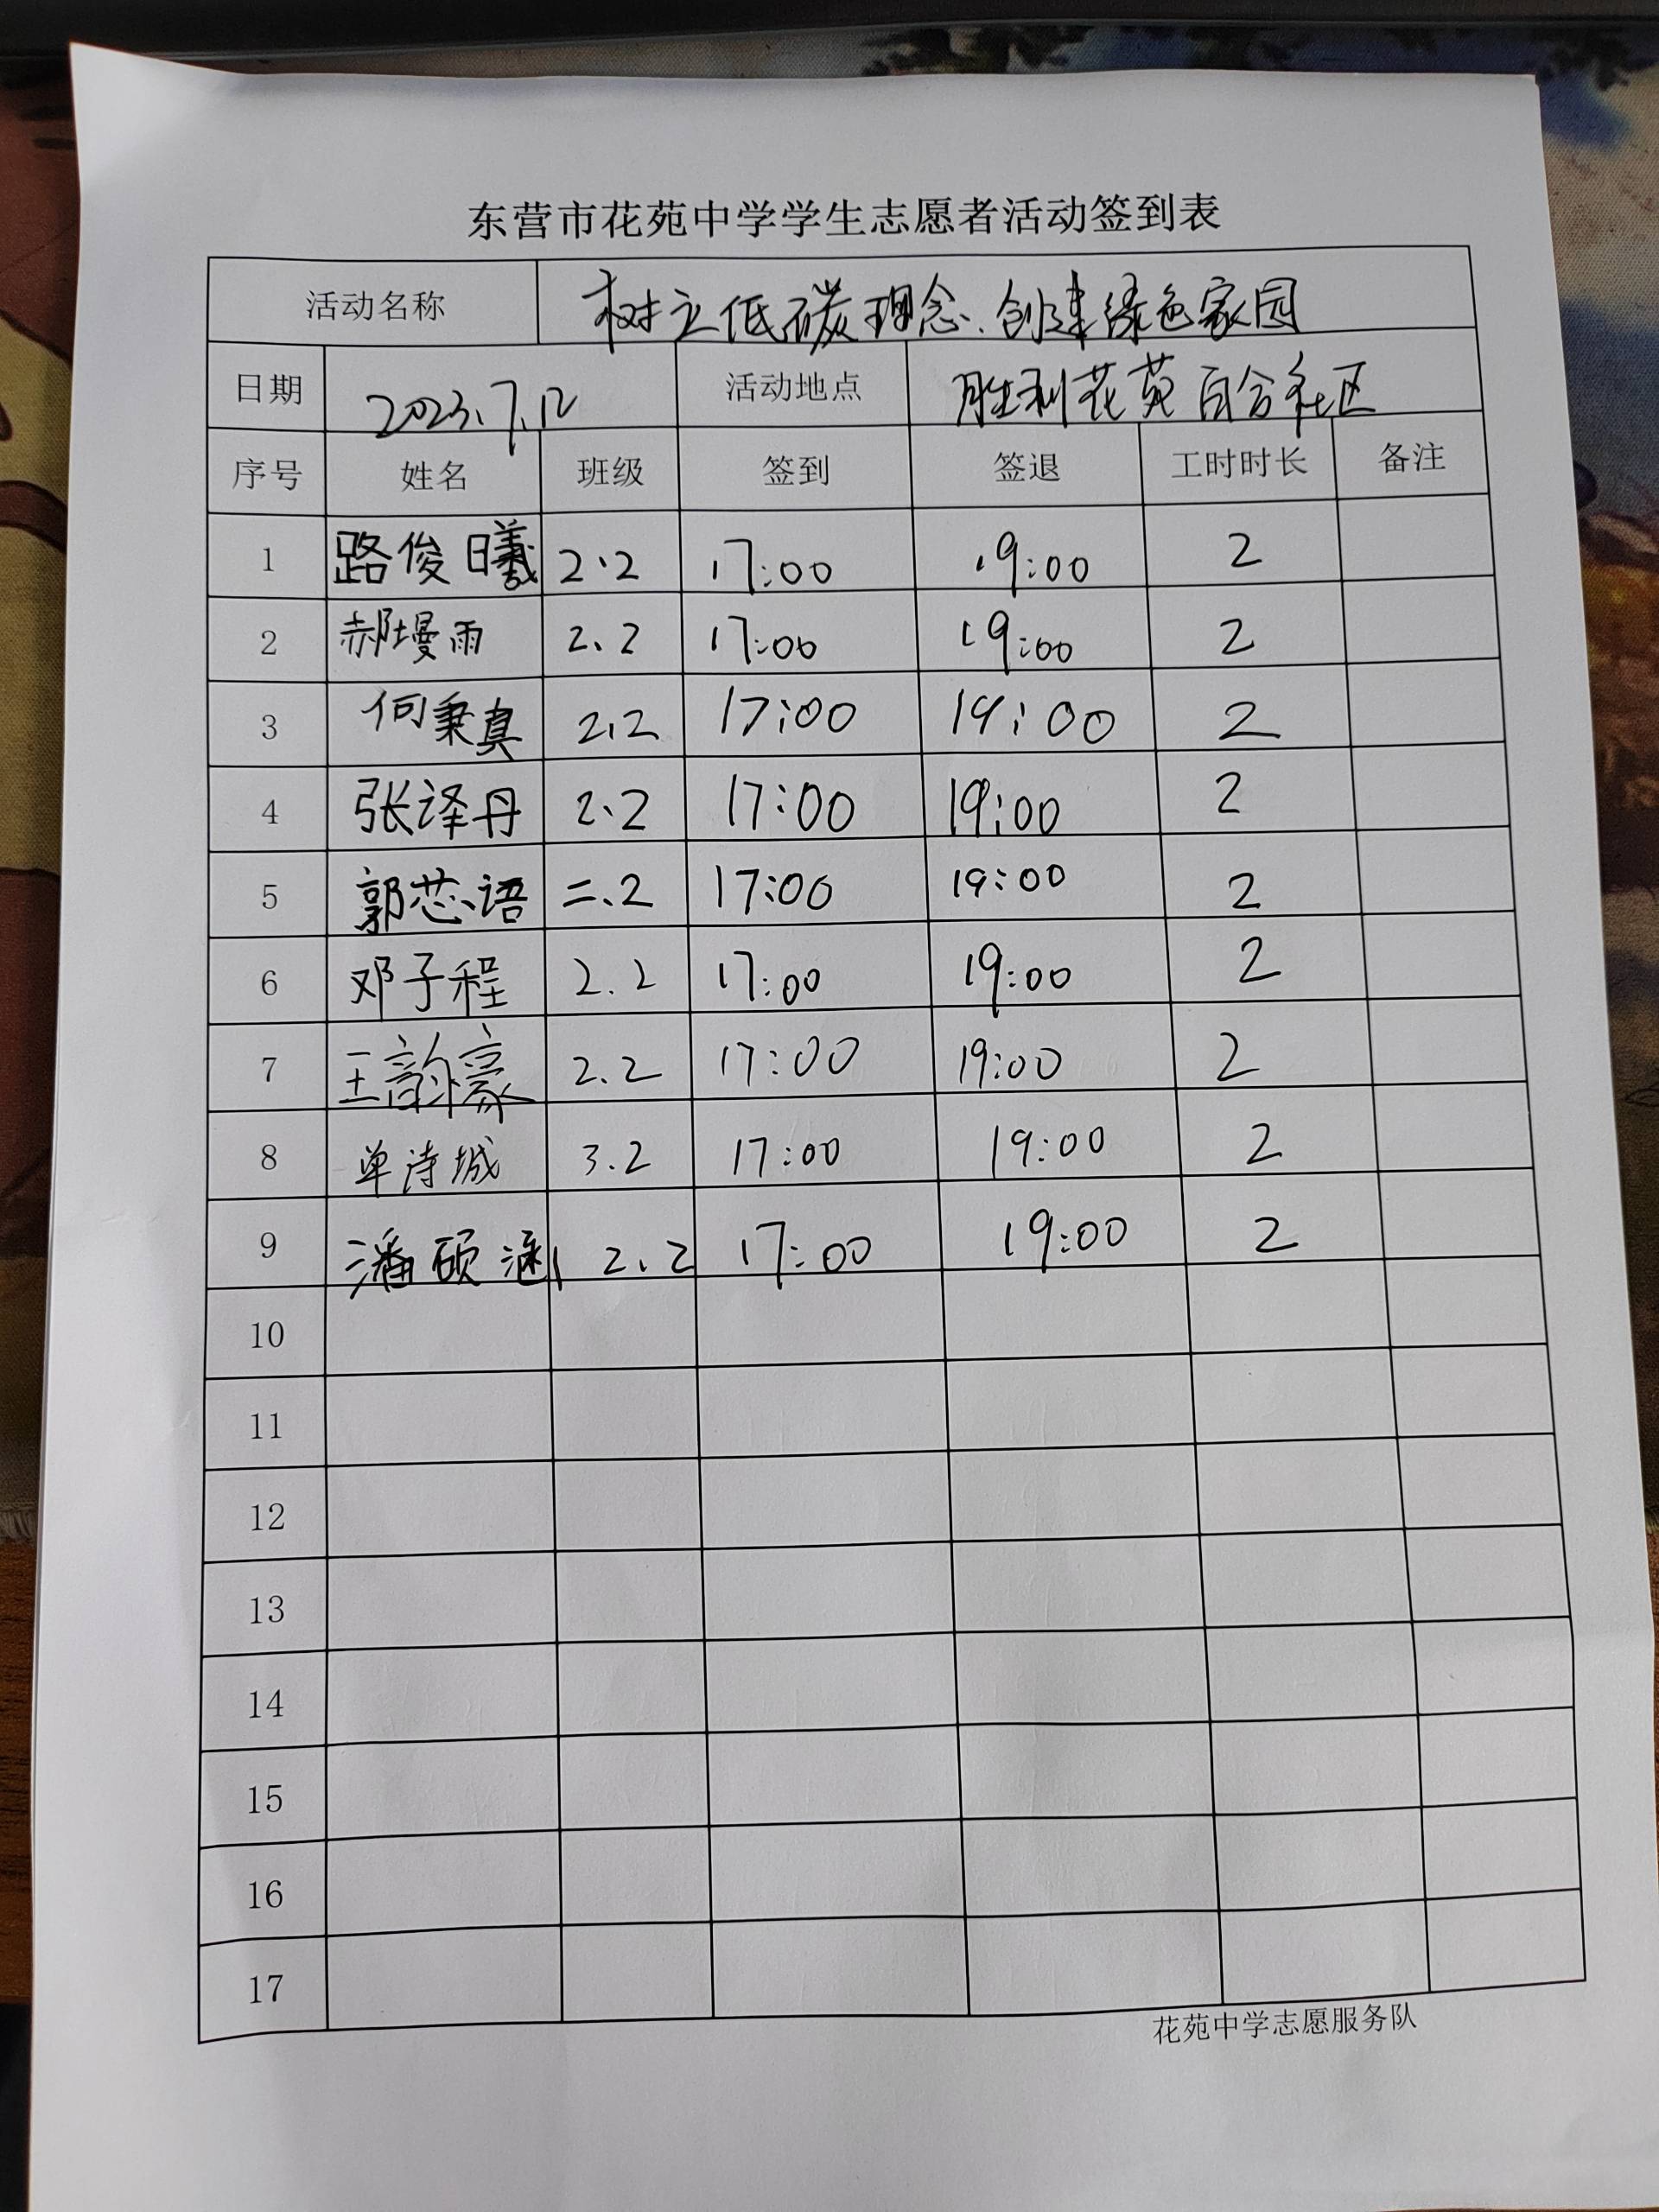 东营市花苑中学学生志愿者活动签到表
活动名称 树立低碳理念、创建绿色家园
日期 2023.7.12 活动地点 胜利花苑百合社区
序号 姓名 班级 签到 签退 工时时长 备注
1 路俊曦 2.2 17:00 19:00 2
2 郝墁雨 2.2 17:00 19:00 2
3 何秉真 2.2 17:00 19:00 2
4 张译丹 2.2 17:00 19:00 2
5 郭芯语 二.2 17:00 19:00 2
6 邓子程 2.2 17:00 19:00 2
7 王韵濠 2.2 17:00 19:00 2
8 单诗城 3.2 17:00 19:00 2
9 潘硕涵 2.2 17:00 19:00 2
10
11
12
13
14
15
16
17
花苑中学志愿服务队